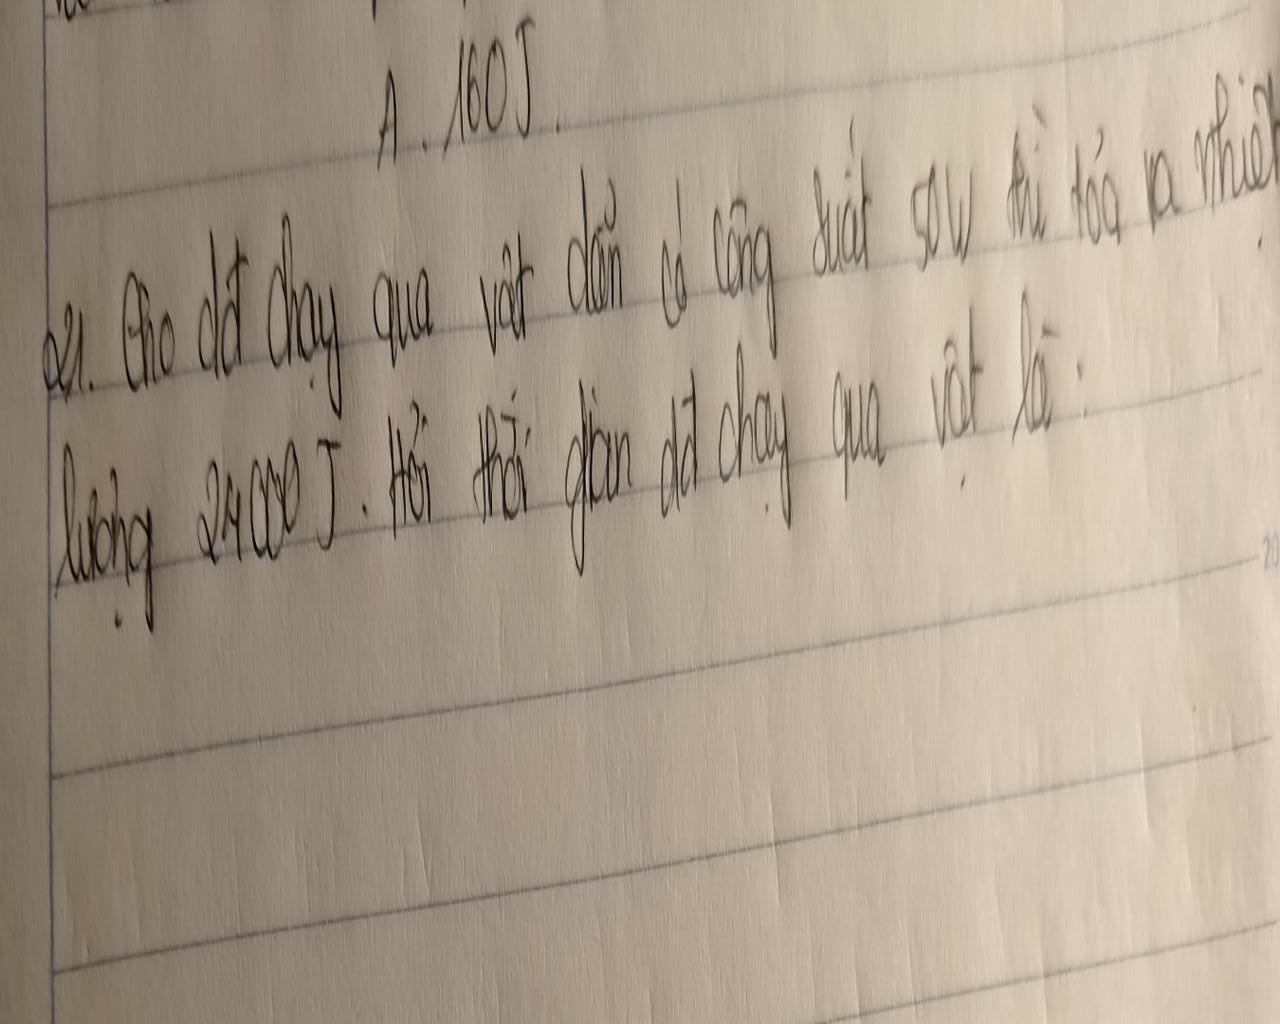 A. 160J.
21. Cho dđ chạy qua vật dẫn có công suất 50W thì tỏa ra nhiệt
lượng 24000J. Hỏi thời gian dđ chạy qua vật là:
20